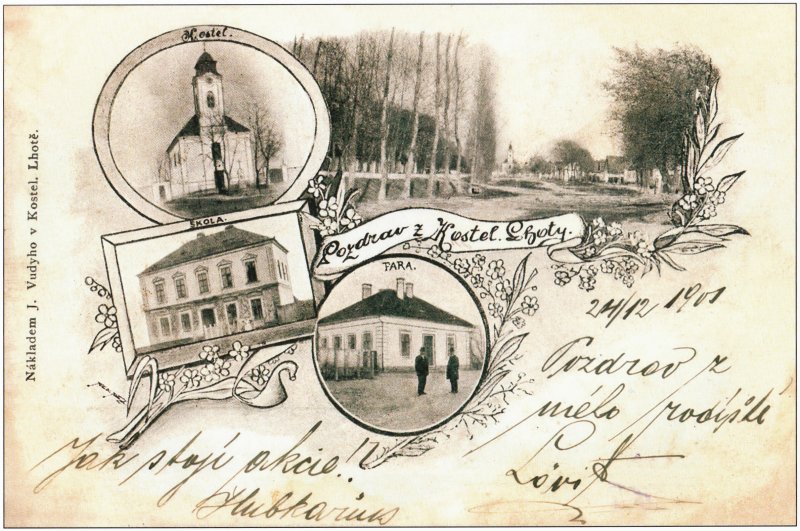 Kostel.
ŠKOLA.
Pozdrav z Kostel. Lhoty.
FARA.
Nákladem J. Vudyho v Kostel. Lhotě.
24/12 1901
Pozdrav z
mélo rodiště
Jak stojí akcie!?